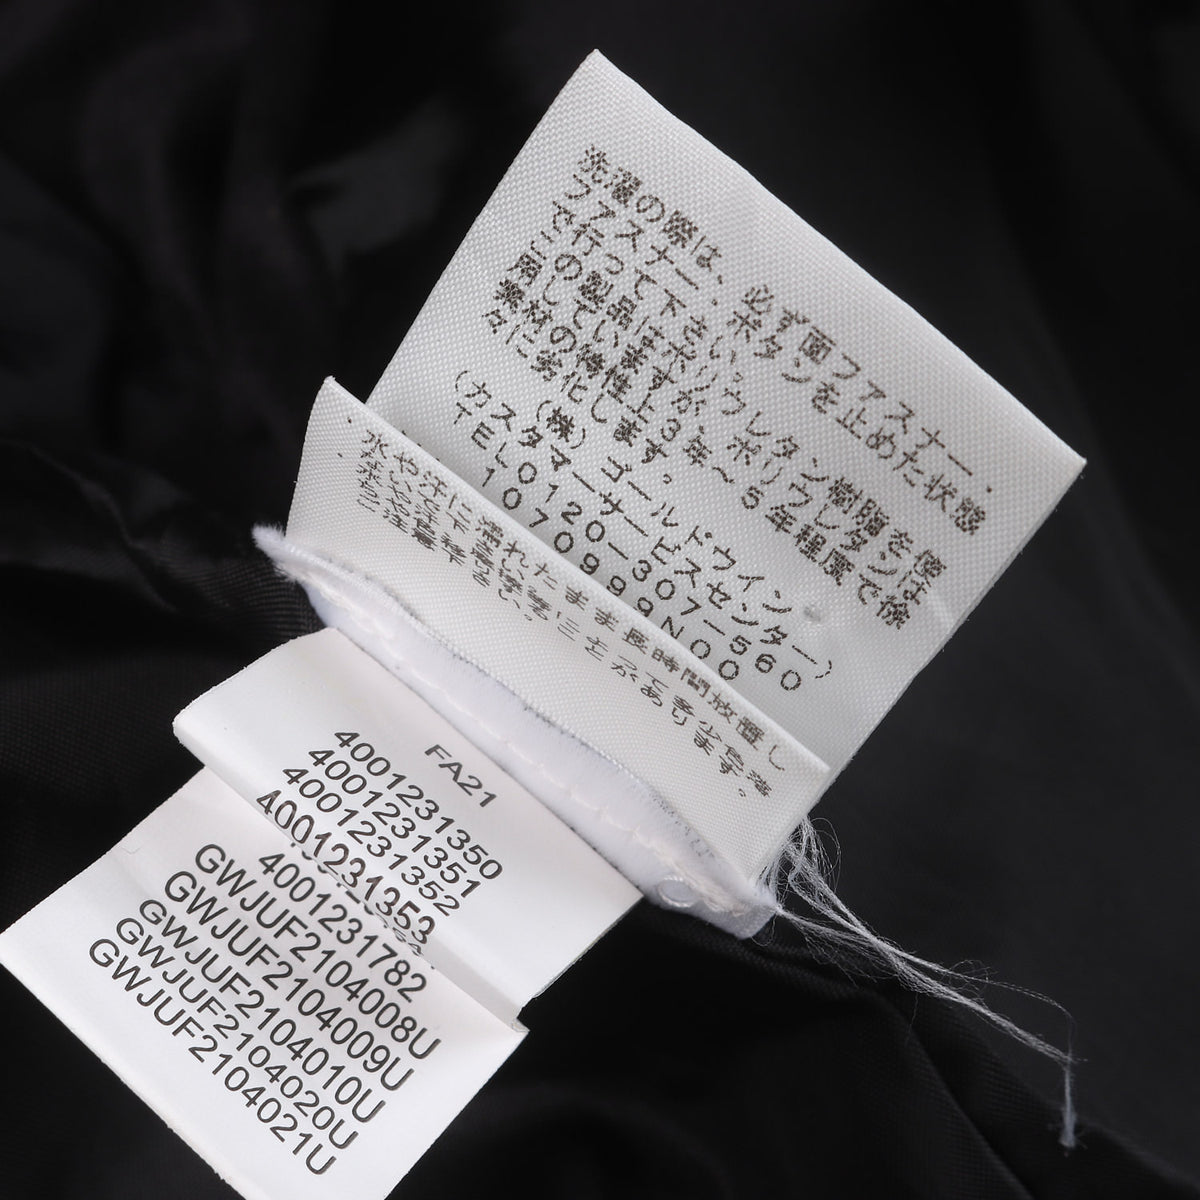 洗濯の際は、必ず面ファスナー・
ファスナー・ボタンを止めた状態
で行って下さい。
この製品はポリウレタン樹脂を使
用していますが、ポリウレタンは
素材の特性上3年~5年程度で徐
々に劣化します。
(株)ゴールドウイン
(カスタマーサービスセンター)
TEL0120-307-560
1070999N00
水や汗に濡れたまま長時間放置し
FA21
4001231350
4001231351
4001231352
4001231353
4001231782
GWJUF2104008U
GWJUF2104009U
GWJUF2104010U
GWJUF2104020U
GWJUF2104021U